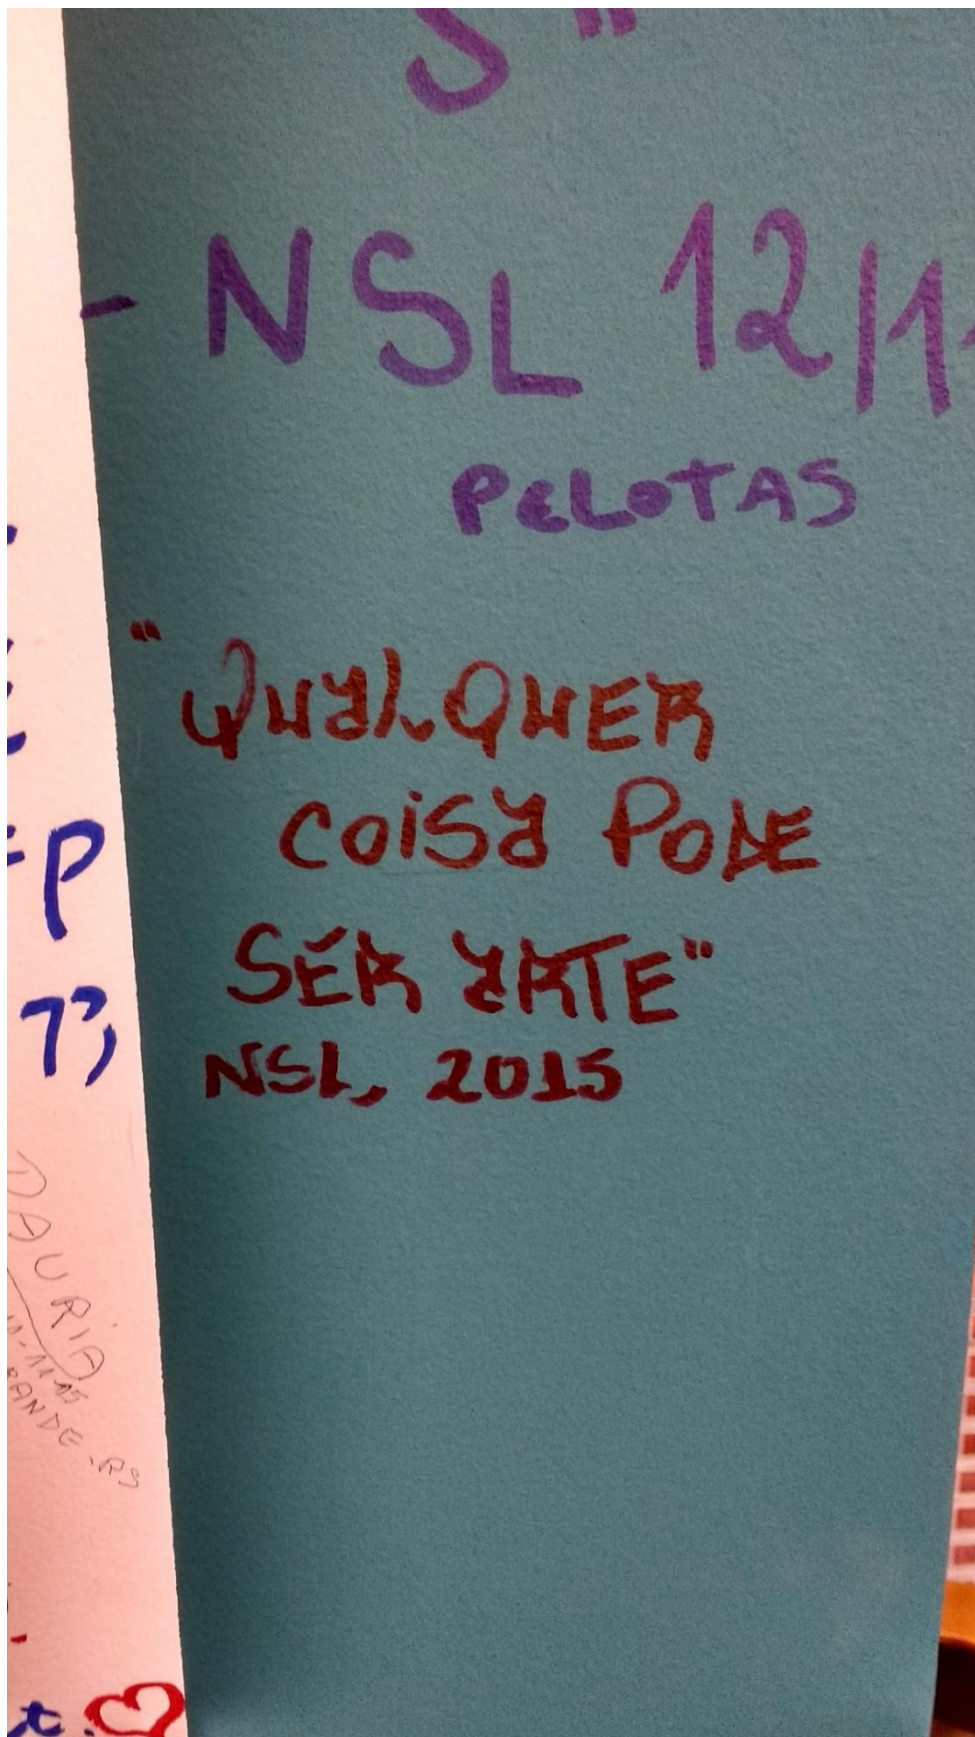 S"
- NSL 12/1
PELOTAS
"QUALQUER
COISA PODE
SER ARTE"
NSL, 2015
P
DAURIA
RANDE-RS